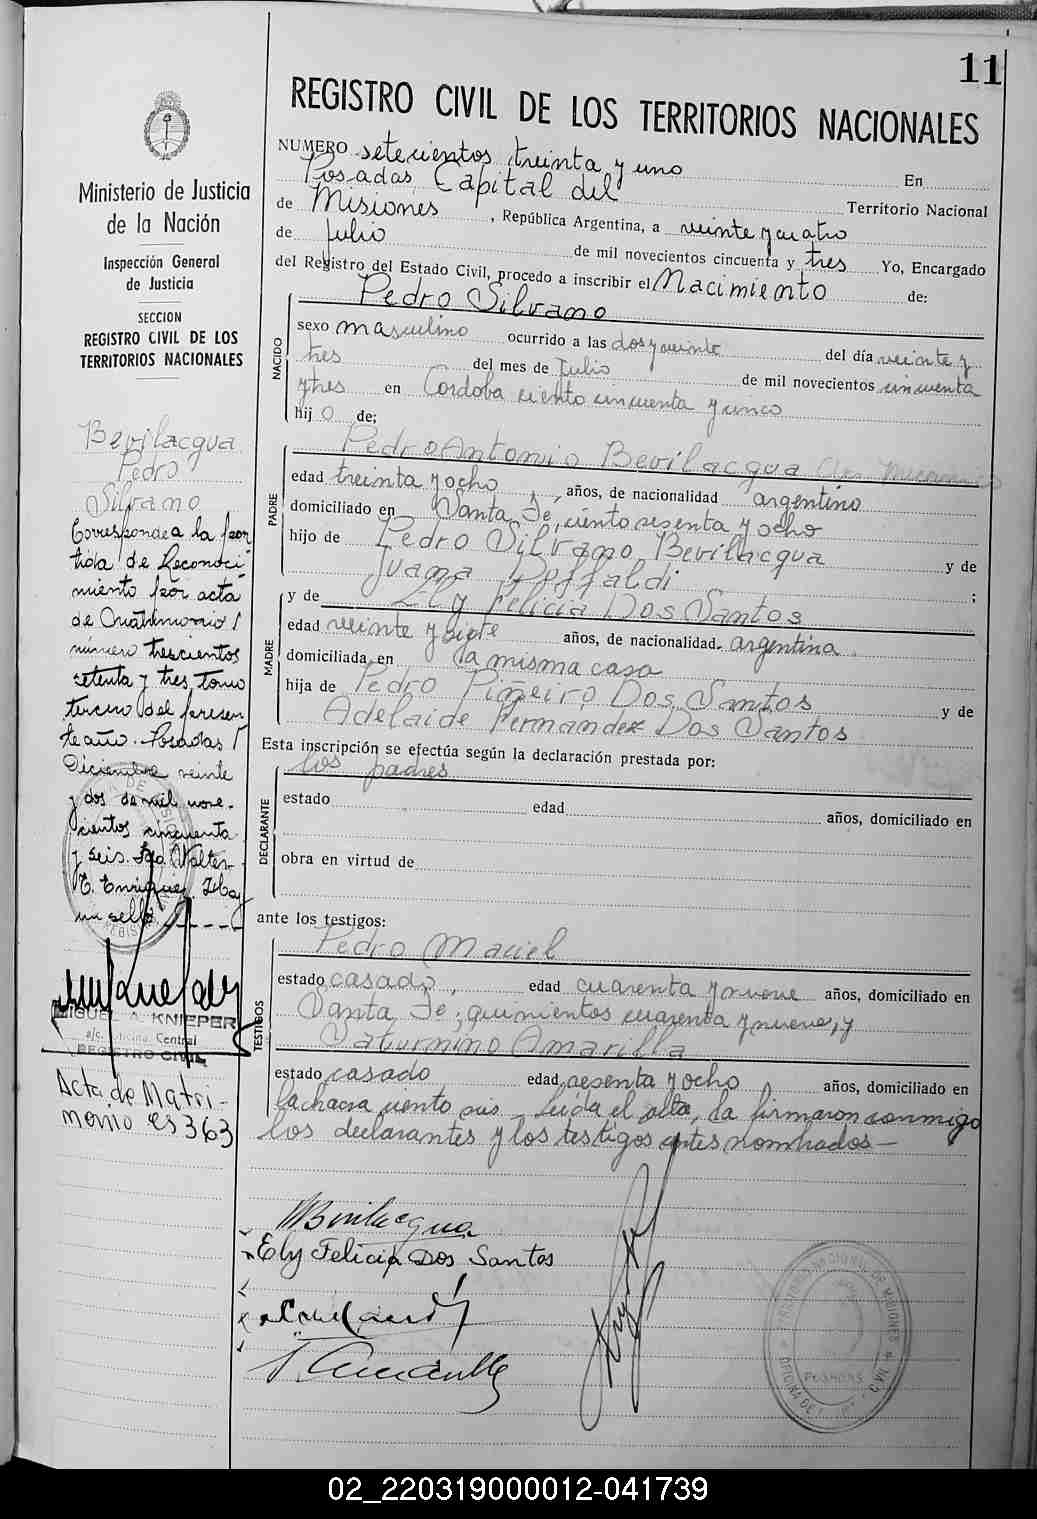 11
REGISTRO CIVIL DE LOS TERRITORIOS NACIONALES
Ministerio de Justicia
de la Nación
Inspección General
de Justicia
SECCION
REGISTRO CIVIL DE LOS
TERRITORIOS NACIONALES
Bevilacqua
Pedro
Silvano
Corresponde a la par
tida de Reconoci-
miento por acta
de Cuatrimonio/
número trescientos
setenta y tres, tomo
tercero del presen
te año. Posadas/
Diciembre veinte
y dos de mil nove-
cientos cincuenta
y seis. Fdo. Walter
E. Enriquez. Hay
un sello.
MIGUEL A. KNIEPER
a/c. Oficina Central
REGISTRO CIVIL
Acta de Matri-
monio es 363
NUMERO setecientos treinta y uno En
Posadas, Capital del Territorio Nacional
de Misiones, República Argentina, a veinte y cuatro
de Julio de mil novecientos cincuenta y tres Yo, Encargado
del Registro del Estado Civil, procedo a inscribir el Nacimiento de:
NACIDO
Pedro Silvano
sexo masculino ocurrido a las dos y veinte del día veinte y
tres del mes de Julio de mil novecientos cincuenta
y tres en Cordoba ciento cincuenta y cinco
hijo de;
PADRE
Pedro Antonio Bevilacqua
edad treinta y ocho, años, de nacionalidad argentino
domiciliado en Santa Fe, ciento sesenta y ocho
hijo de Pedro Silvano Bevilacqua y de
Juana ;
MADRE
y de Ely Felicia Dos Santos
edad veinte y siete años, de nacionalidad argentina
domiciliada en la misma casa
hija de Pedro Piñeiro Dos Santos y de
Adelaide Fernandez Dos Santos
Esta inscripción se efectúa según la declaración prestada por:
DECLARANTE
los padres
estado edad años, domiciliado en
obra en virtud de
ante los testigos:
TESTIGOS
Pedro Maciel
estado casado, edad cuarenta y nueve años, domiciliado en
Santa Fe, quinientos cuarenta y nueve, y
Saturnino Amarilla
estado casado edad sesenta y ocho, años, domiciliado en
lachacra ciento seis. Leída el acta, la firmaron conmigo
los declarantes y los testigos antes nombrados—
Bevilacqua
Ely Felicia Dos Santos
POSADAS
02_220319000012-041739